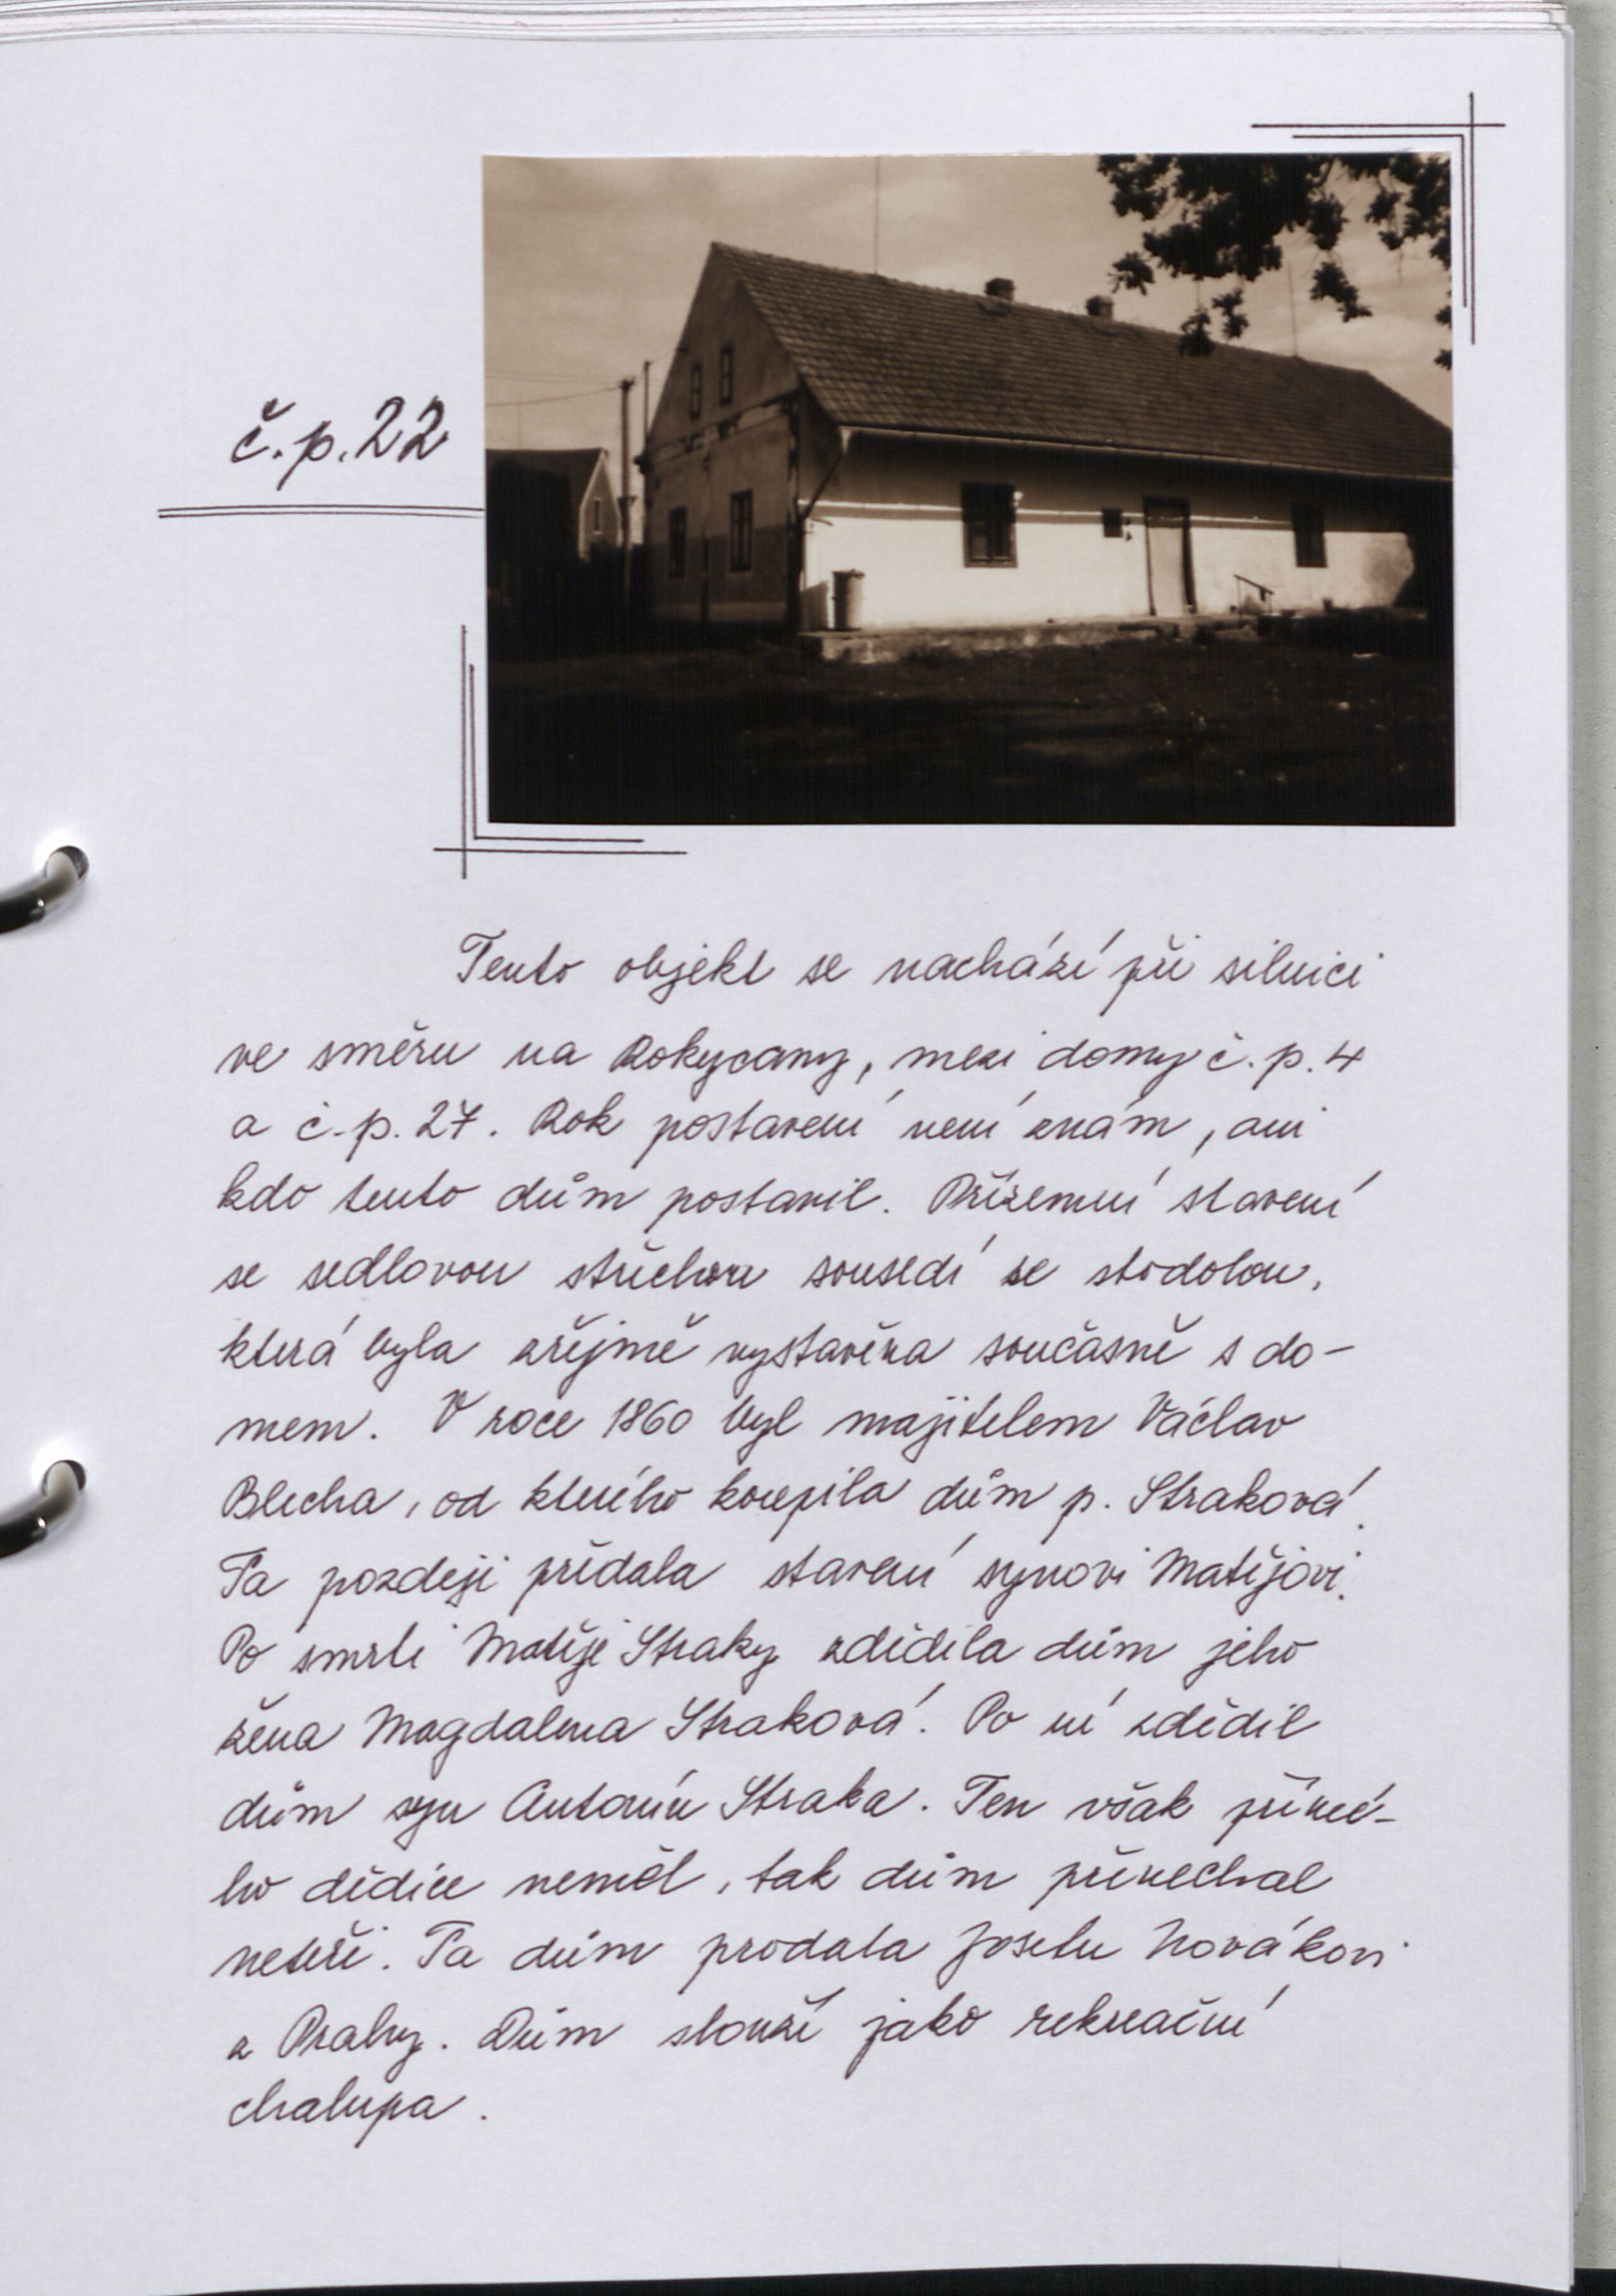 č.p. 22
Tento objekt se nachází při silnici
ve směru na Rokycany, mezi domy č.p. 4
a č.p. 27. Rok postavení není znám, ani
kdo tento dům postavil. Přízemní stavení
se sedlovou střechou sousedí se stodolou,
která byla zřejmě vystavěna současně s do-
mem. V roce 1860 byl majitelem Václav
Blecha, od kterého koupila dům p. Straková.
Ta později předala stavení synovi Matějovi.
Po smrti Matěje Straky zdědila dům jeho
žena Magdalena Straková. Po ní zdědil
dům syn Antonín Straka. Ten však přímé-
ho dědice neměl, tak dům přenechal
neteři. Ta dům prodala Josefu Novákovi
z Prahy. Dům slouží jako rekreační
chalupa.